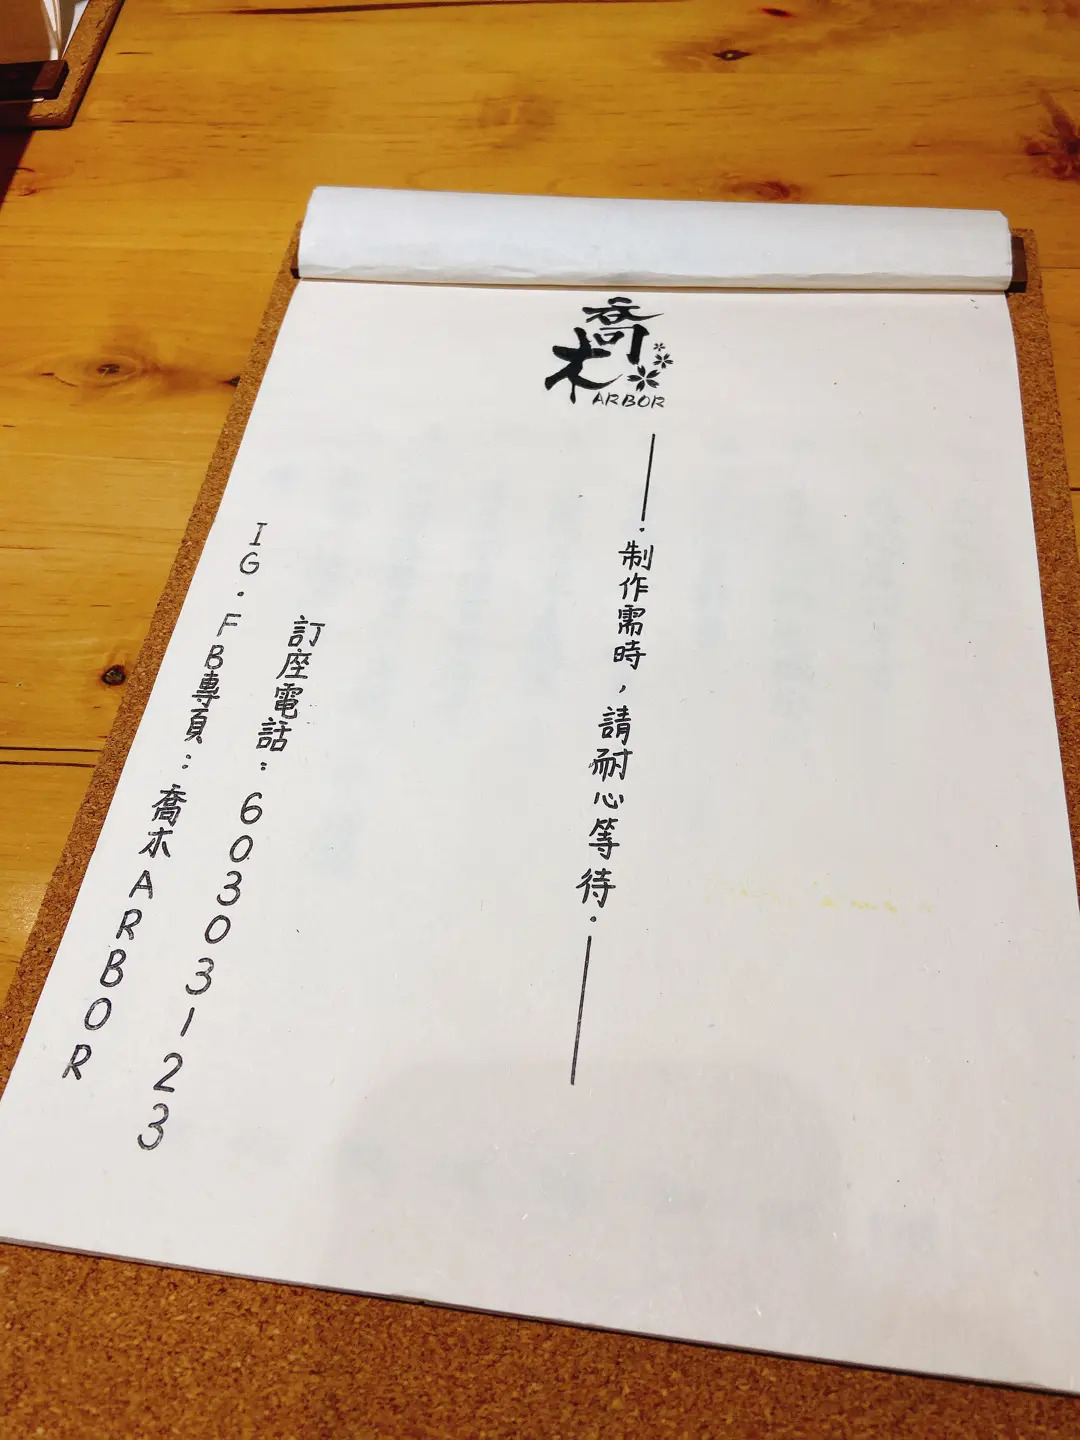 喬木
ARBOR
制作需時，請耐心等待．
訂座電話：60303123
IG．FB專頁：喬木ARBOR